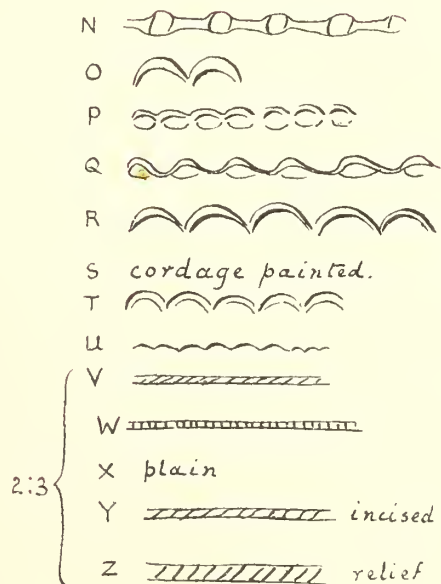 N
O
P
Q
R
S cordage painted.
T
U
V
W
X plain
2:3
Y incised
Z relief